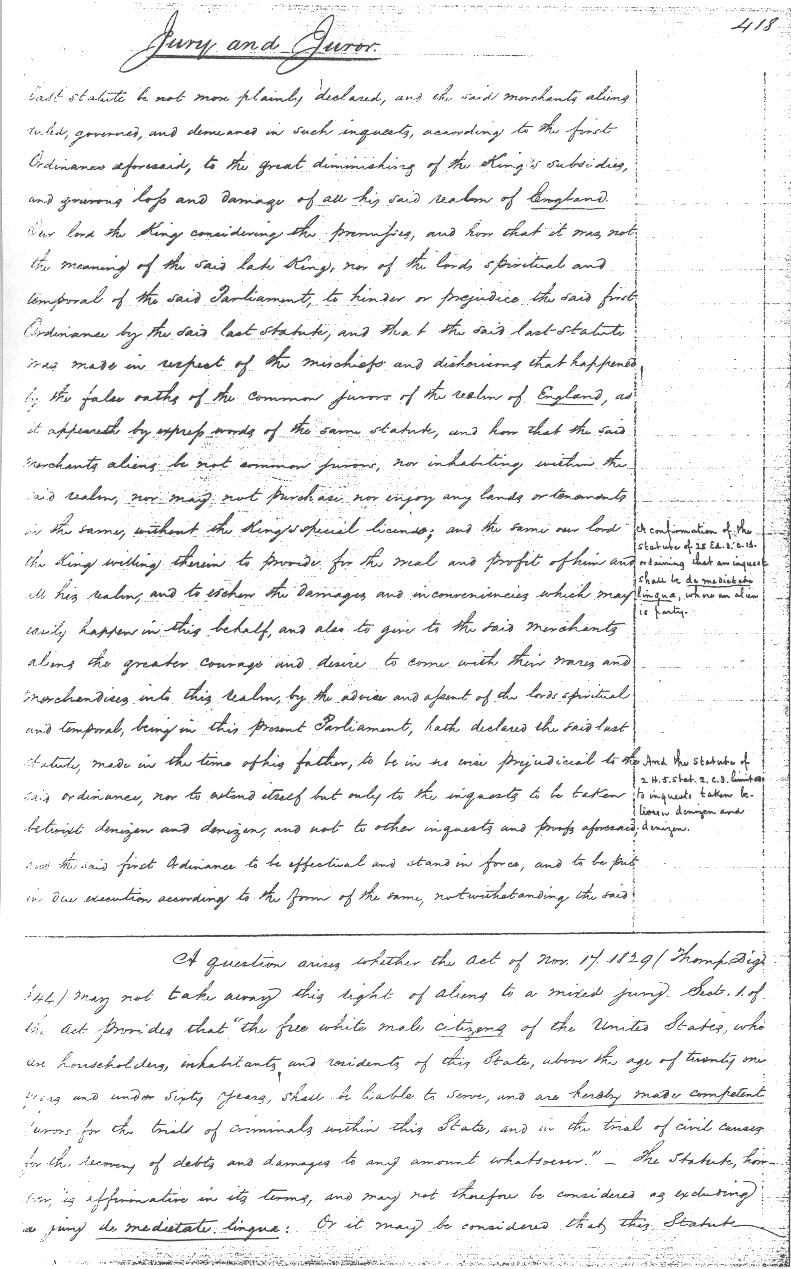 418
Jury and Juror.
last statute be not more plainly declared, and the said merchants aliens
ruled, governed, and demeaned in such inquests, according to the first
Ordinance aforesaid, to the great diminishing of the King's subsidies,
and grievous loss and damage of all his said realm of England.
Our lord the King considering the premisses, and how that it was not
the meaning of the said late King, nor of the lords spiritual and
temporal of the said Parliament, to hinder or prejudice the said first
Ordinance by the said last statute, and that the said last statute
was made in respect of the mischiefs and disherisons that happened
by the false oaths of the common jurors of the realm of England, as
it appeareth by express words of the same statute, and how that the said
merchants aliens be not common jurors, nor inhabiting within the
said realm, nor may not purchase nor enjoy any lands or tenements
in the same, without the King's special license; and the same our lord
the King willing therein to provide for the weal and profit of him and
all his realm, and to eschew the damages and inconveniencies which may
easily happen in this behalf, and also to give to the said merchants
aliens the greater courage and desire to come with their wares and
merchandises into this realm, by the advice and assent of the lords spiritual
and temporal, being in this present Parliament, hath declared the said last
statute, made in the time of his father, to be in no wise prejudicial to the
said ordinance, nor to extend itself but only to the inquests to be taken
betwixt denizen and denizen, and not to other inquests and proofs aforesaid;
and the said first Ordinance to be effectual and stand in force, and to be put
in due execution according to the form of the same, notwithstanding the said
A confirmation of the
statute of 28 Ed. 3. c. 13.
ordaining that an inquest
shall be de medietate
lingua, where an alien
is party.
And the statute of
2 H. 5. Stat. 2. c. 3. limited
to inquests taken be-
tween denizen and
denizen.
A question arises whether the act of Nov. 17. 1829 (Thomp. Dig.
344) may not take away this right of aliens to a mixed jury. Sect. 1. of
the act provides that "the free white male citizens of the United States, who
are householders, inhabitants and residents of this State, above the age of twenty one
years and under sixty years, shall be liable to serve, and are hereby made competent
jurors for the trials of criminals within this State, and in the trial of civil causes
for the recovery of debts and damages to any amount whatsoever." — The Statute, how-
ever, is affirmative in its terms, and may not therefore be considered as excluding
a jury de medietate lingua: Or it may be considered that this Statute